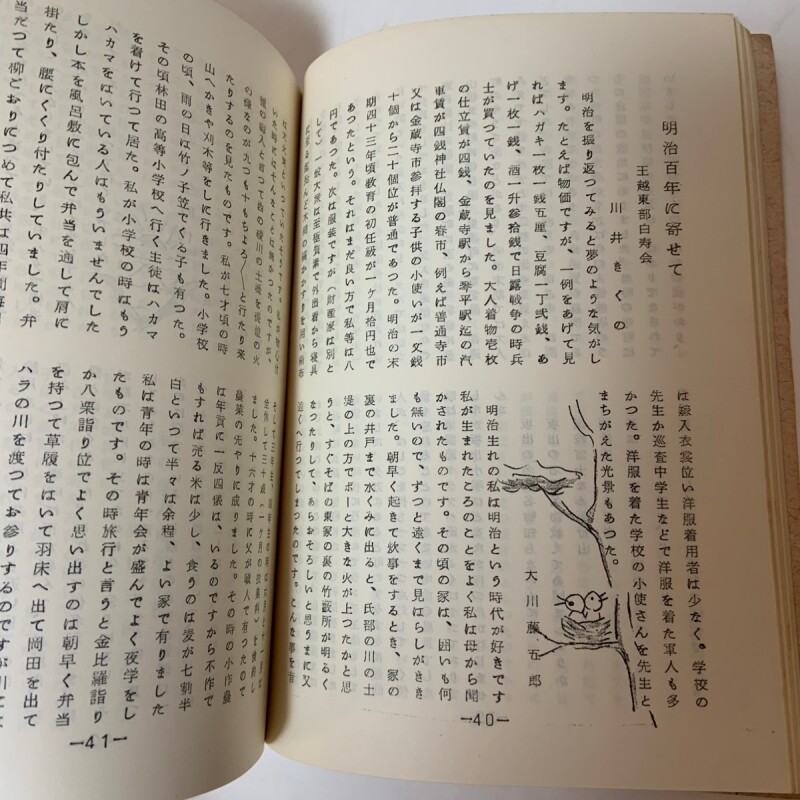 明治百年に寄せて
王越東部白寿会
川井きくの
明治を振り返つてみると夢のような気がし
ます。たとえば物価ですが、一例をあげて見
ればハガキ一枚一銭五厘、豆腐一丁弐銭、あ
げ一枚一銭、酒一升参拾銭で日露戦争の時兵
士が買つていたのを見ました。大人着物壱枚
の仕立賃が四銭、金蔵寺駅から琴平駅迄の汽
車賃が四銭神社仏閣の春市、例えば善通寺市
又は金蔵寺市参拝する子供の小使いが一文銭
十個から二十個位が普通であつた。明治の末
期四十三年頃教育の初任級が一ケ月拾円也で
あつたという。それはまだ良い方で私等は八
円であつた。次は服装ですが（財産家は別と
して）一般大衆は至極質素で外出着から寝具
は嫁入衣裳位い洋服着用者は少なく。学校の
先生か巡査中学生などで洋服を着た軍人も多
かつた。洋服を着た学校の小使さんを先生と
まちがえた光景もあつた。
大川藤五郎
明治生れの私は明治という時代が好きです
私が生まれたころのことをよく私は母から聞
かされたものです。その頃の家は、囲いも何
も無いので、ずつと遠くまで見はらしがきき
ました。朝早く起きて炊事をするとき、家の
裏の井戸まで水くみに出ると、氏部の川の土
堤の上の方でボーと大きな火が上つたかと思
うと、すぐそばの東家の裏の竹藪所が明るく
なつたりして、あらおそろしいと思うまに又
遠くへ行つてしまつたのです。こんな事を皆
—40—
たりするのを見たものです。私が七才頃の時
山へかきや刈木等をしに行きました。小学校
の頃、雨の日は竹ノ子笠でくる子も有つた。
その頃林田の高等小学校へ行く生徒はハカマ
を着けて行つて居た。私が小学校の時はもう
ハカマをはいている人はもういませんでした
しかし本を風呂敷に包んで弁当を通して肩に
掛たり、腰にくくり付たりしていました。弁
当だつて柳ごおりにつめて私共は四年制毎
ました。十六才の時に父が職人で有つたので
農業の先やりに成りました。その時の小作農
は年貢に一反四俵は、いるのですから不作で
もすれば売る米は少し、食うのは麦が七割半
白といつて半々は余程、よい家で有りました
私は青年の時は青年会が盛んでよく夜学をし
たものです。その時旅行と言うと金比羅詣り
か八栗詣り位でよく思い出すのは朝早く弁当
を持つて草履をはいて羽床へ出て岡田を出て
ハラの川を渡つてお参りするのですが川には
—41—